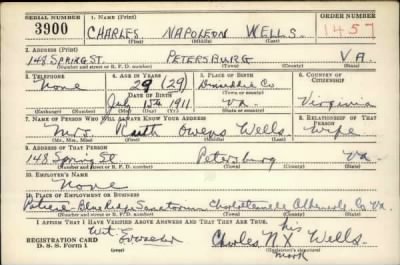 SERIAL NUMBER 1. NAME (Print) ORDER NUMBER
3900 CHARLES NAPOLEON WELLS 1457
(First) (Middle) (Last)
2. ADDRESS (Print)
148 SPRING ST. PETERSBURG VA.
(Number and street or R. F. D. number) (Town) (County) (State)
3. TELEPHONE 4. AGE IN YEARS 5. PLACE OF BIRTH 6. COUNTRY OF CITIZENSHIP
None 29 (29) Dinwiddie Co
DATE OF BIRTH (Town or county)
July 15th 1911 Va. Virginia
(Exchange) (Number) (Mo.) (Day) (Yr.) (State or country)
7. NAME OF PERSON WHO WILL ALWAYS KNOW YOUR ADDRESS 8. RELATIONSHIP OF THAT PERSON
Mrs. Ruth Owens Wells Wife
(Mr., Mrs., Miss) (First) (Middle) (Last)
9. ADDRESS OF THAT PERSON
148 Spring St Petersburg Va
(Number and street or R. F. D. number) (Town) (County) (State)
10. EMPLOYER'S NAME
None
11. PLACE OF EMPLOYMENT OR BUSINESS
Blue Ridge Charlottesville Albemarle Co Va.
(Number and street or R. F. D. number) (Town) (County) (State)
I AFFIRM THAT I HAVE VERIFIED ABOVE ANSWERS AND THAT THEY ARE TRUE.
his
Wit. Charles N. X Wells
REGISTRATION CARD
D. S. S. Form 1 (Registrant's signature)
mark